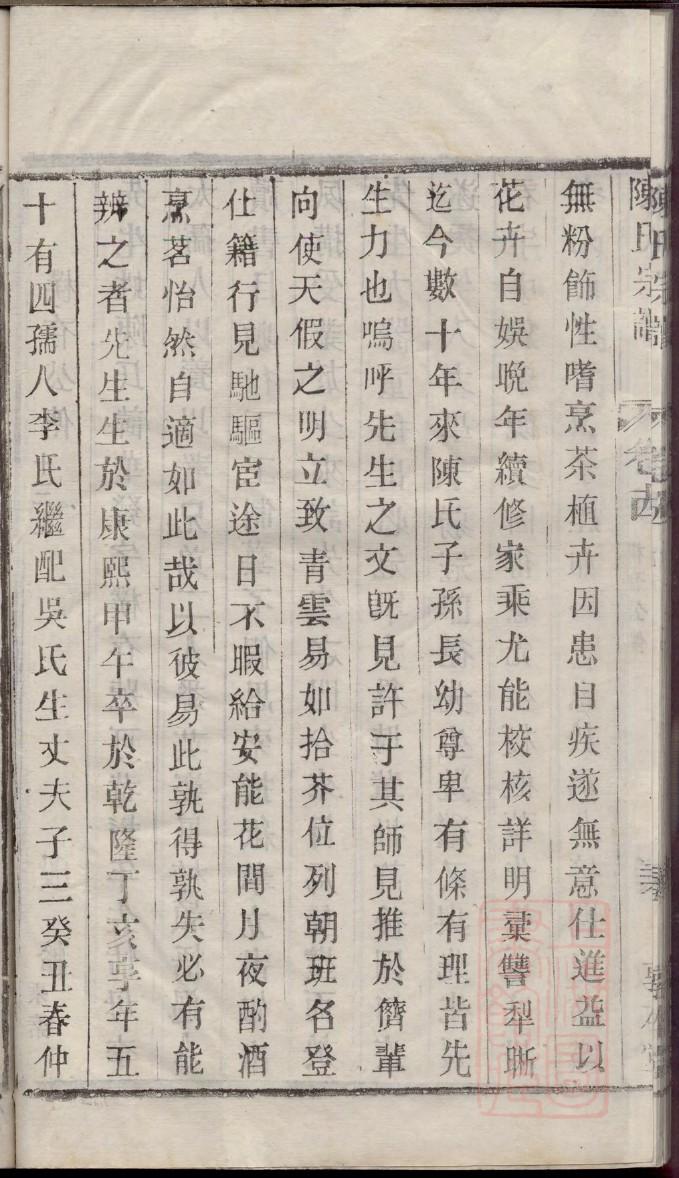 陳氏宗譜
卷十四
無粉飾性嗜烹茶植卉因患目疾遂無意仕進益以
花卉自娛晚年續修家乘尤能校核詳明彙讐犁晰
迄今數十年來陳氏子孫長幼尊卑有條有理皆先
生力也嗚呼先生之文旣見許于其師見推於儕輩
向使天假之明立致青雲易如拾芥位列朝班名登
仕籍行見馳驅宦途日不暇給安能花間月夜酌酒
烹茗怡然自適如此哉以彼易此孰得孰失必有能
辨之者先生生於康熙甲午卒於乾隆丁亥享年五
十有四孺人李氏繼配吳氏生丈夫子三癸丑春仲